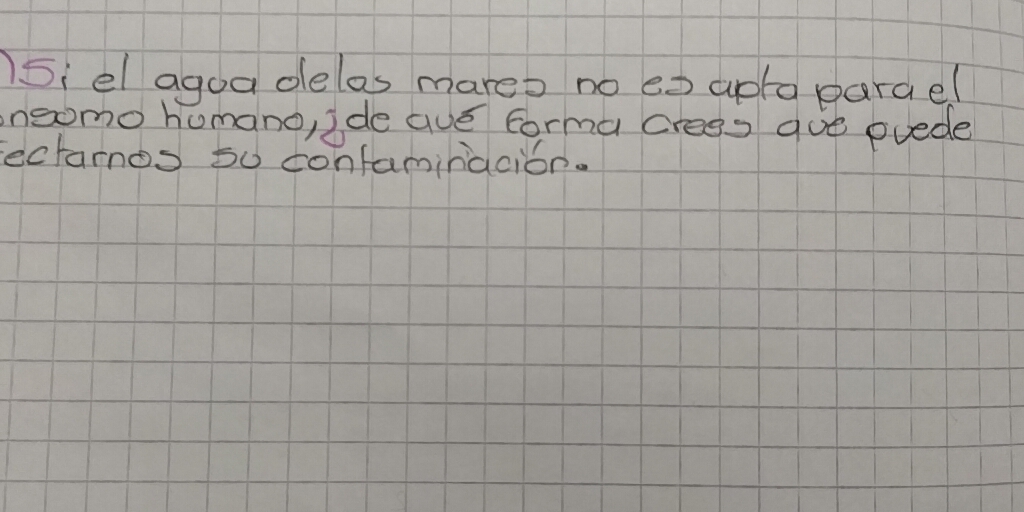 )Si el agua delas mares no es apta para el
onsomo humano, ¿de qué forma crees que puede
fectarnos su contaminación.